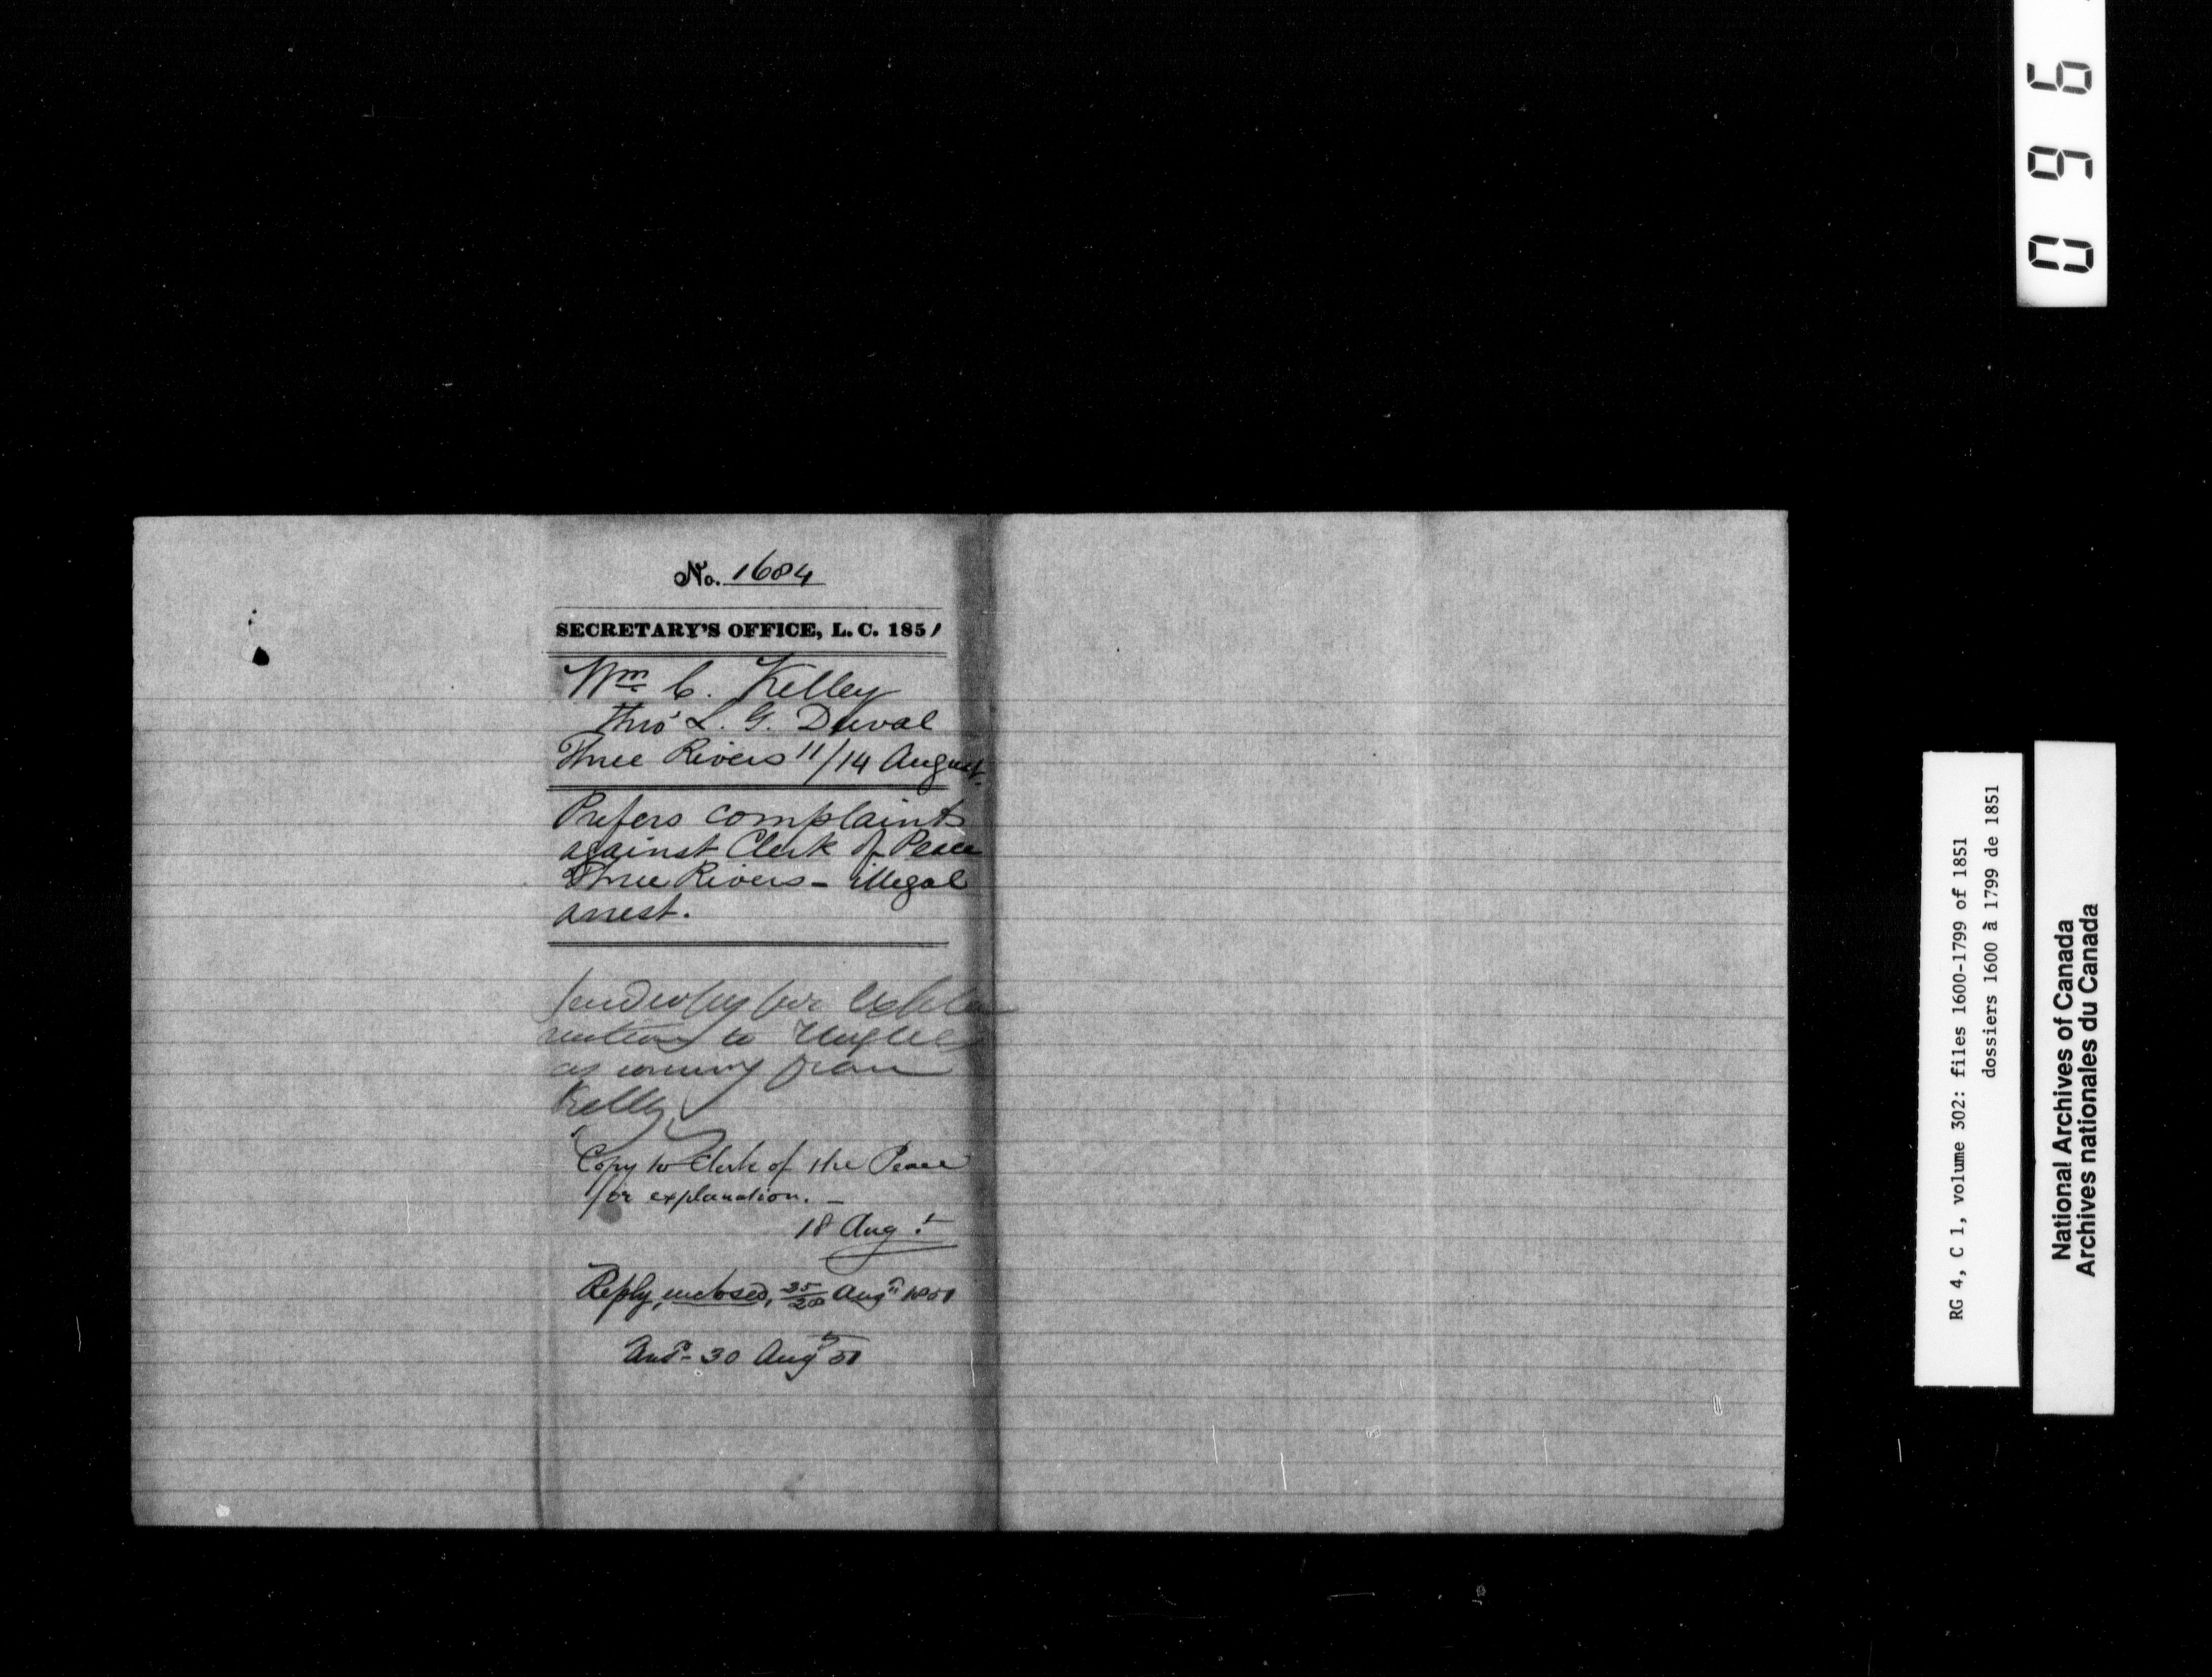 No. 1684
SECRETARY'S OFFICE, L. C. 1851
Wm C. Kelley
thro' L. G. Duval
Three Rivers 11/14 August.
Prefers complaints
against Clerk of Peace
Three Rivers - illegal
arrest.
for
to
as coming from
Kelley
Copy to Clerk of the Peace
for explanation. -
18 Augt
Reply, enclosed, 25/28 Augt 1851
Ansd - 30 Augt 51
096
RG 4, C 1, volume 302: files 1600-1799 of 1851
dossiers 1600 à 1799 de 1851
National Archives of Canada
Archives nationales du Canada